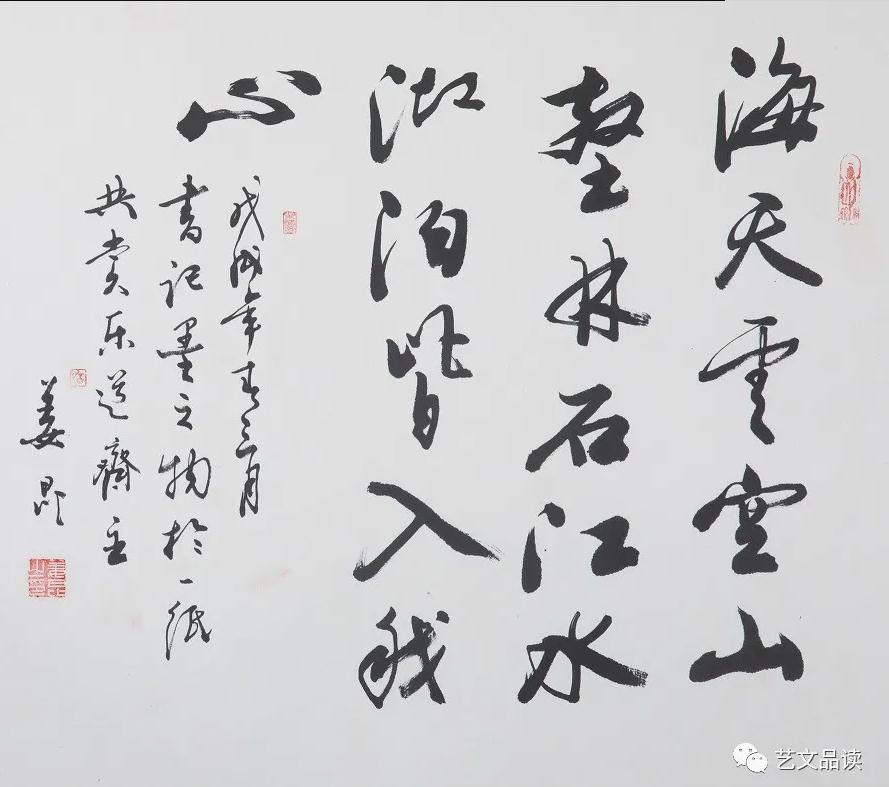 海天雲空山
壑林石江水
湖泊皆入我
心
戊戌年春三月
書记墨之物於一纸
共赏乐道齋主
姜昆
艺文品读